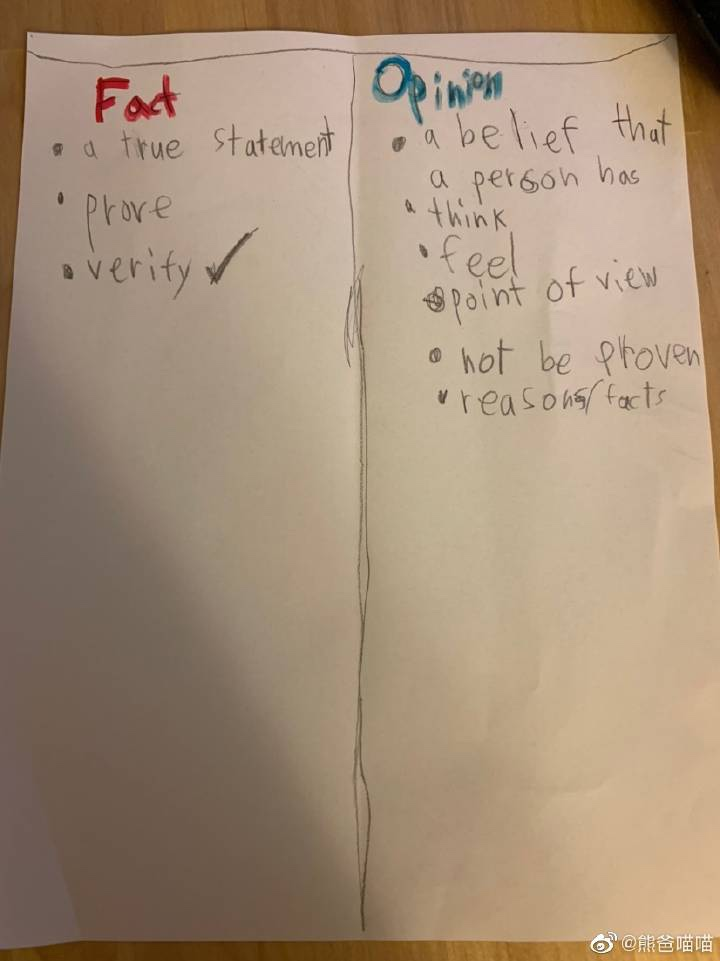 Fact
• a true statement
• prove
• verify ✓
Opinion
• a belief that
a person has
• think
• feel
• point of view
• not be proven
• reasons/facts
@熊爸喵喵